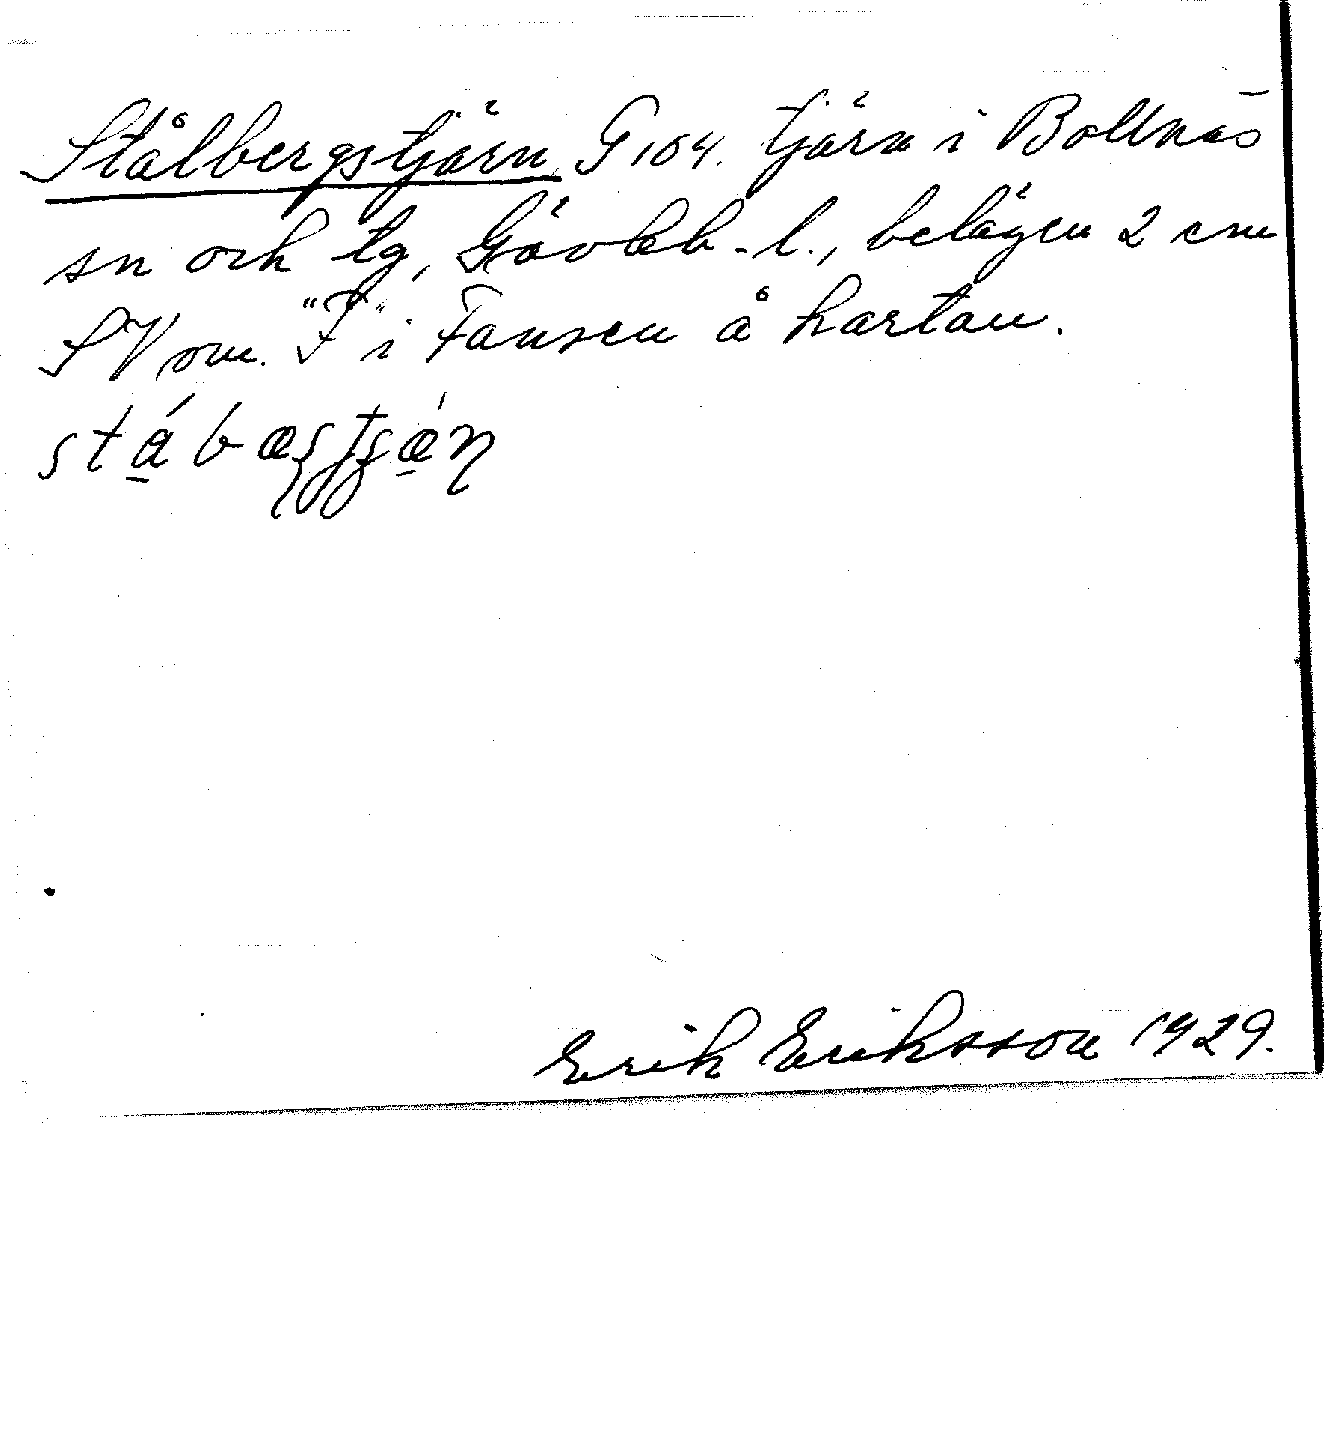 Stålbergstjärn, G 104. tjärn i Bollnäs
sn och tg, Gävleb-l., belägen 2 cm
SV om. "F" i Fansen å kartan.
Erik Eriksson 1929.